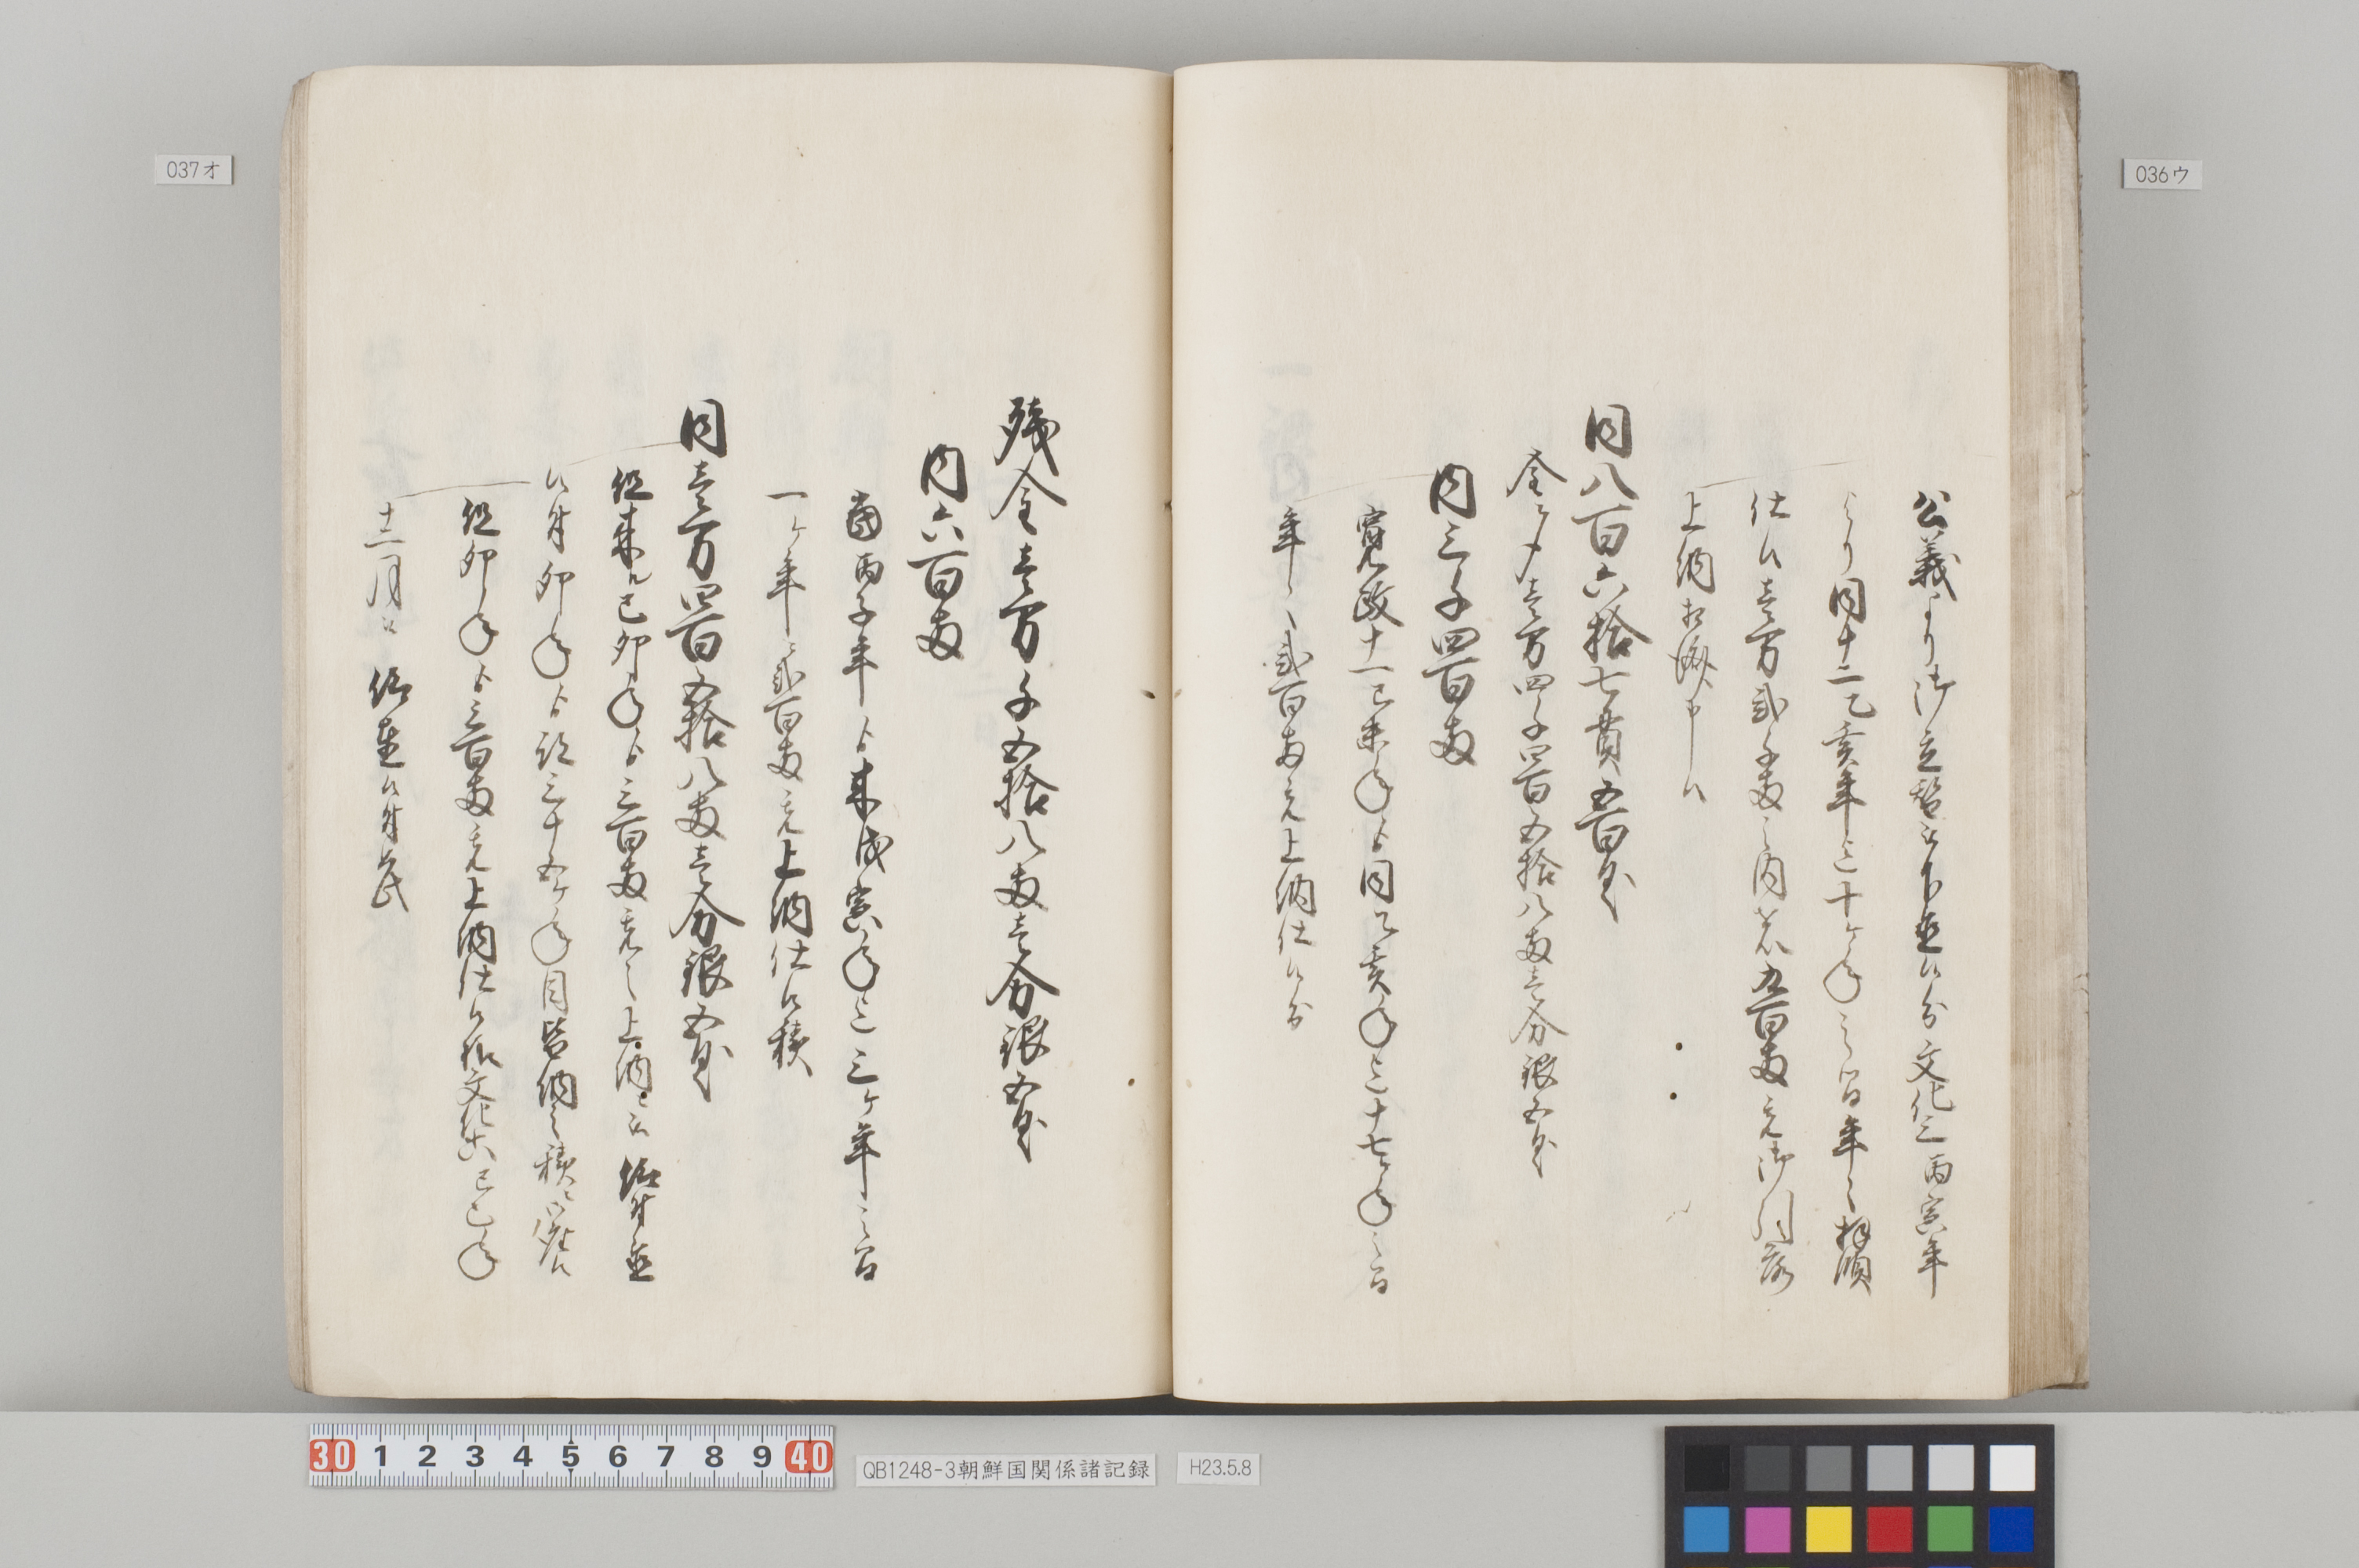 036ウ
公義より御立替被下置候分文化三丙寅年
より同十二乙亥年迄十ケ年之間年々拝領
仕候壱万弐千両之内ゟ五百両充御引落
上納相済申候
同八百六拾七貫五百目
金〆壱万四千四百五拾八両壱分銀五匁
内三千四百両
寛政十一己未年ゟ同乙亥年迄十七年之間
年々弐百両充上納仕候分
037オ
残金壱万千五拾八両壱分銀五匁
内六百両
当丙子年ゟ来戊寅年迄三ケ年之間
一ケ年弐百両充上納仕候積
同壱万四百五拾八両壱分銀五匁
従来ル己卯年ゟ三百両充上納之被仰付置
候付卯年ゟ訖三十五ケ年目皆納之積ニ御座候
従卯年ゟ三百両充上納仕候儀文化六己巳年
十二月被仰置候付
30 1 2 3 4 5 6 7 8 9 40
QB1248-3朝鮮国関係諸記録
H23.5.8